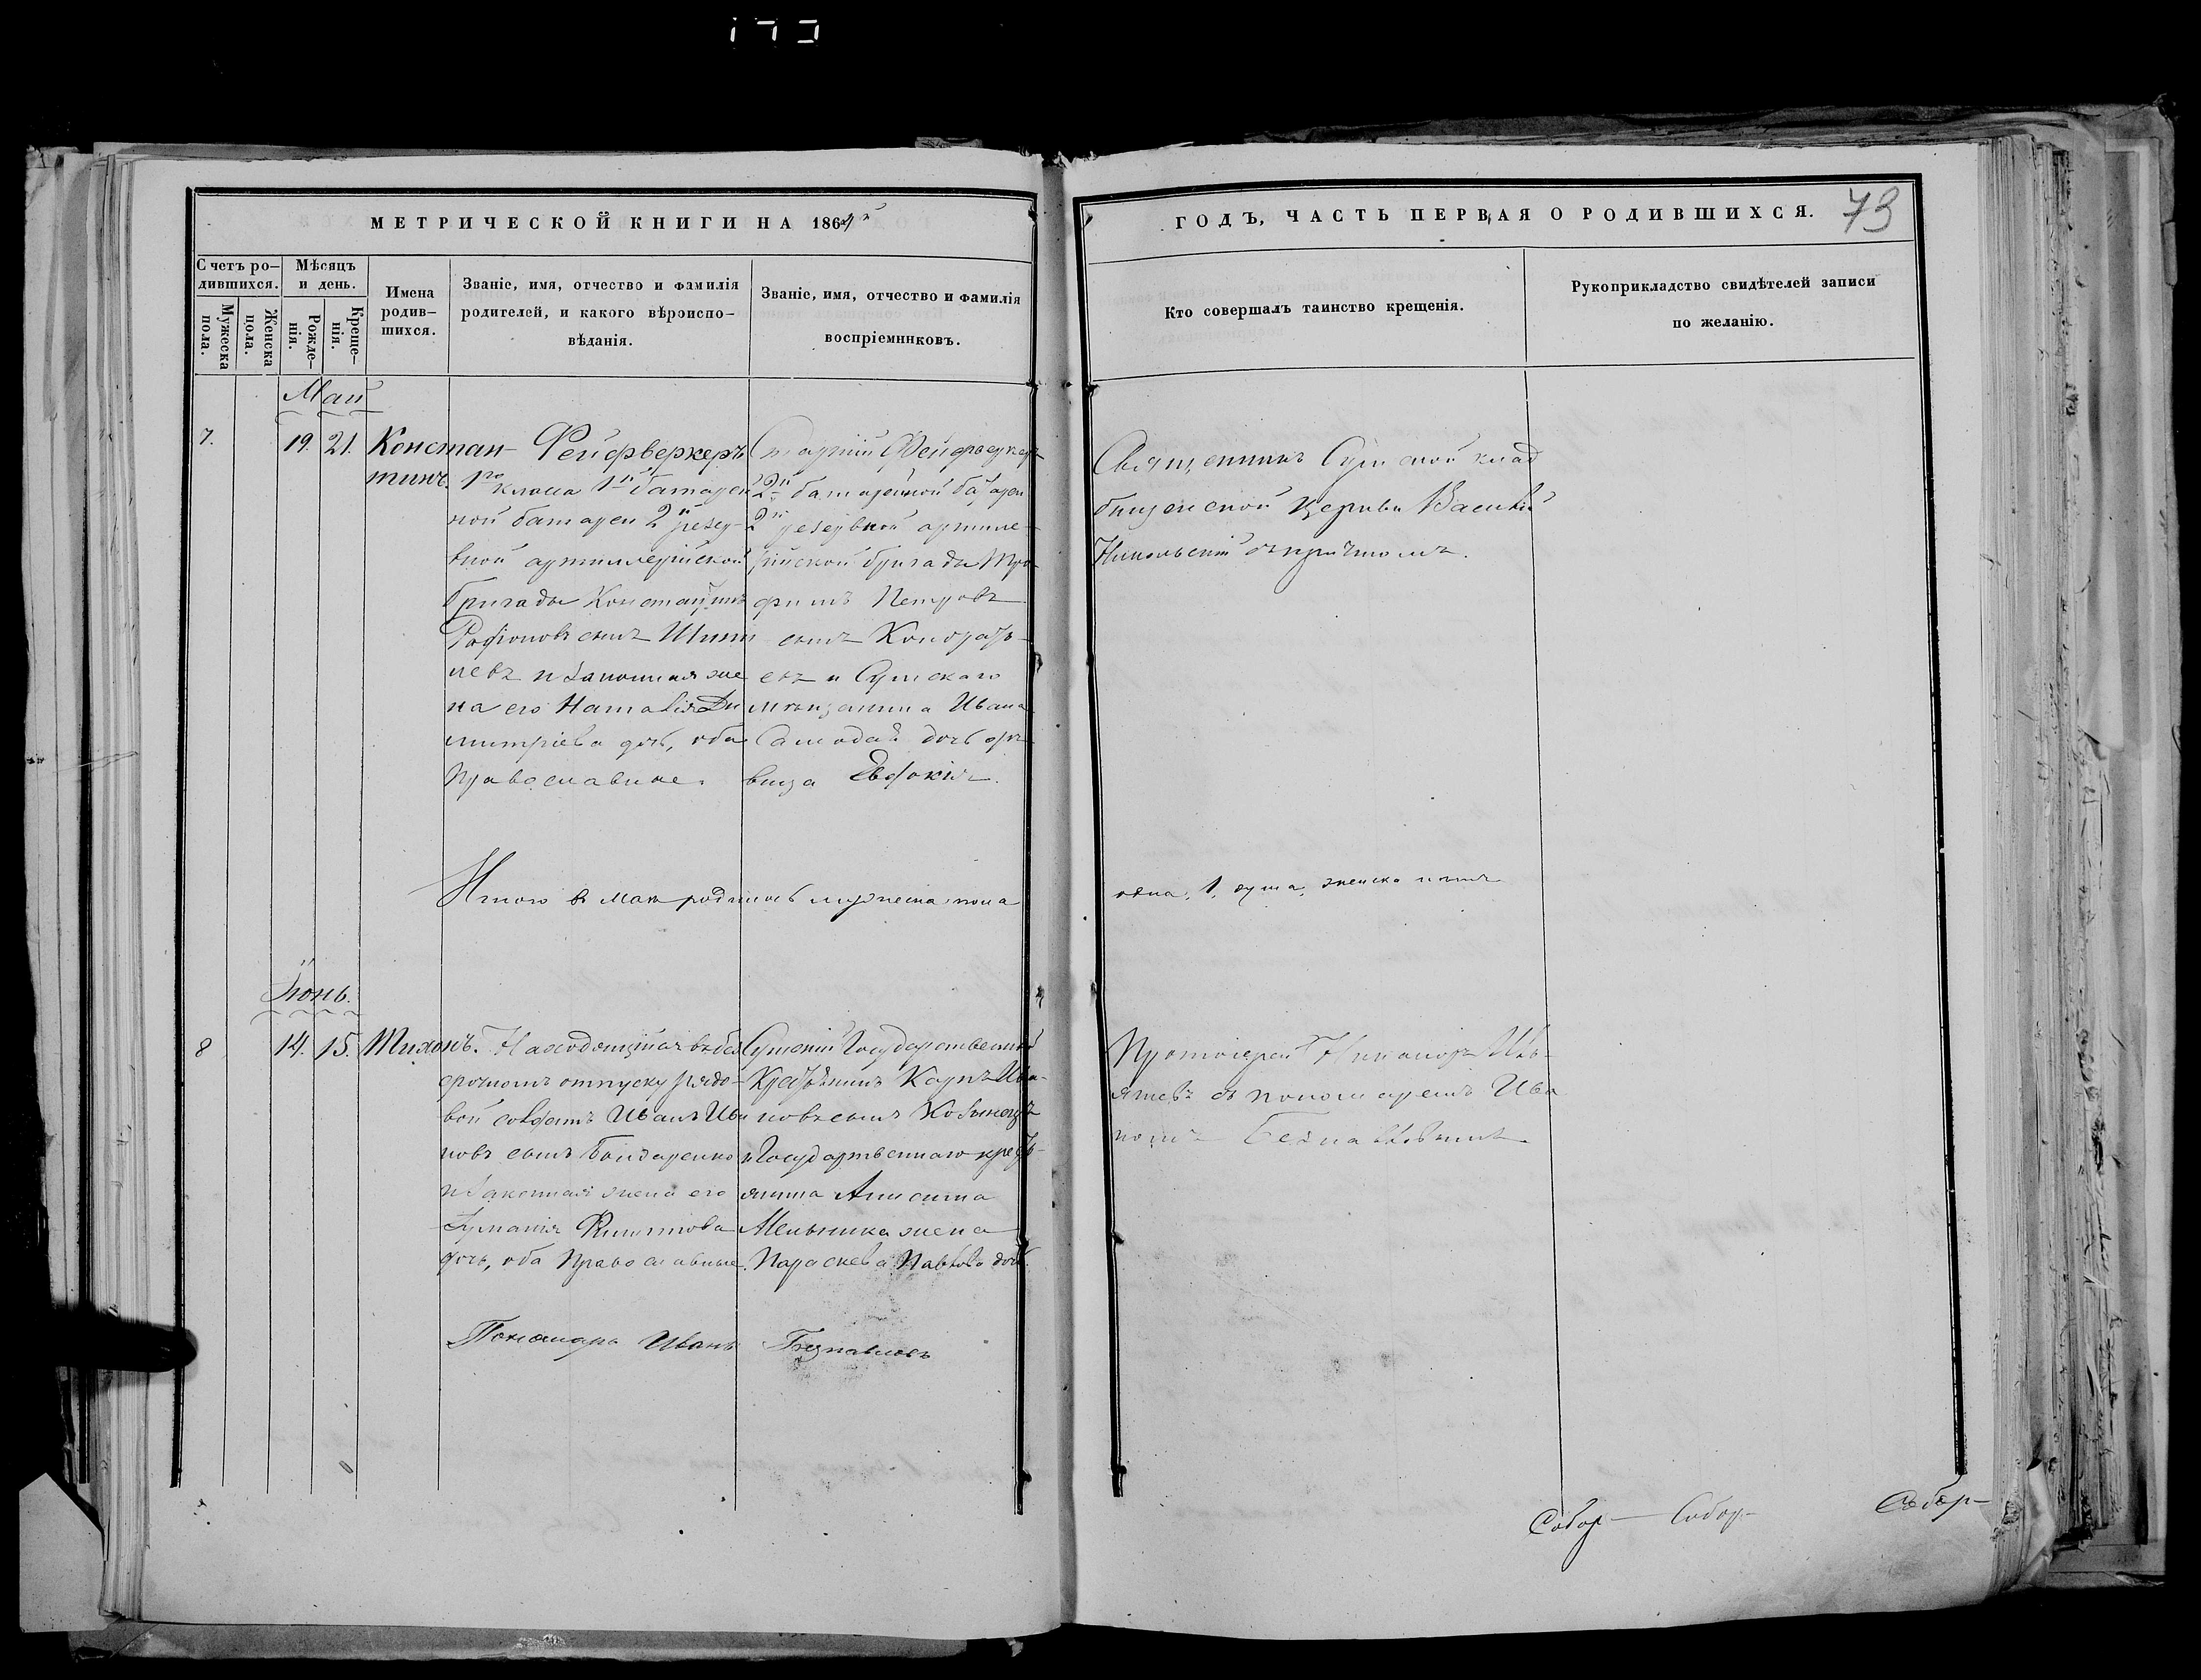 МЕТРИЧЕСКОЙ КНИГИ НА 1864й
ГОДЪ, ЧАСТЬ ПЕРВАЯ О РОДИВШИХСЯ.
73
Счетъ ро-
дившихся.
Мужеска
пола.
Женска
пола.
Мѣсяцъ
и день.
Рожде-
нія.
Креще-
нія.
Имена
родив-
шихся.
Званіе, имя, отчество и фамилія
родителей, и какого вѣроиспо-
вѣданія.
Званіе, имя, отчество и фамилія
воспріемниковъ.
Кто совершалъ таинство крещенія.
Рукоприкладство свидѣтелей записи
по желанію.
Май
7.
19.
21.
Констан-
тинъ.
Фейерверкеръ
1го класса 1й батарей
ной батареи 2й резер-
вной артиллерійской
бригады Константинъ
Родіоновъ сынъ
и законная же
на его Наталія Ди
митріева дочь, оба
Православные.
Старшій Фейерверкеръ
2й батарейной батареи
2й резервной артилле-
рійской бригады Тро-
фимъ Петровъ
сынъ Кондратъ-
евъ и Сумскаго
мѣщанина Ивана
дочь дѣ-
вица Евдокія.
Священникъ Сумской клад
бищенской Церкви Василій
Никольскій съ причтомъ.
Итого въ маѣ родилось мужеска пола
одна, 1, душа, женска
Іюнь.
8
14.
15.
Тихонъ.
Находящійся въ без
срочномъ отпуску рядо-
вой солдатъ Иванъ Ива
новъ сынъ Бондаренко
и законная жена его
Филиппова
дочь, оба Православные.
Сумскій Государственный
Крестьянинъ Карпъ Ива-
новъ сынъ
и Государственнаго кресть-
янина Анисима
Мельника жена
Параскева Павлова дочь.
Протоіерей Никаноръ
съ пономаремъ Ива
номъ
Пономарь Иванъ
Собор- Собор- Собор-